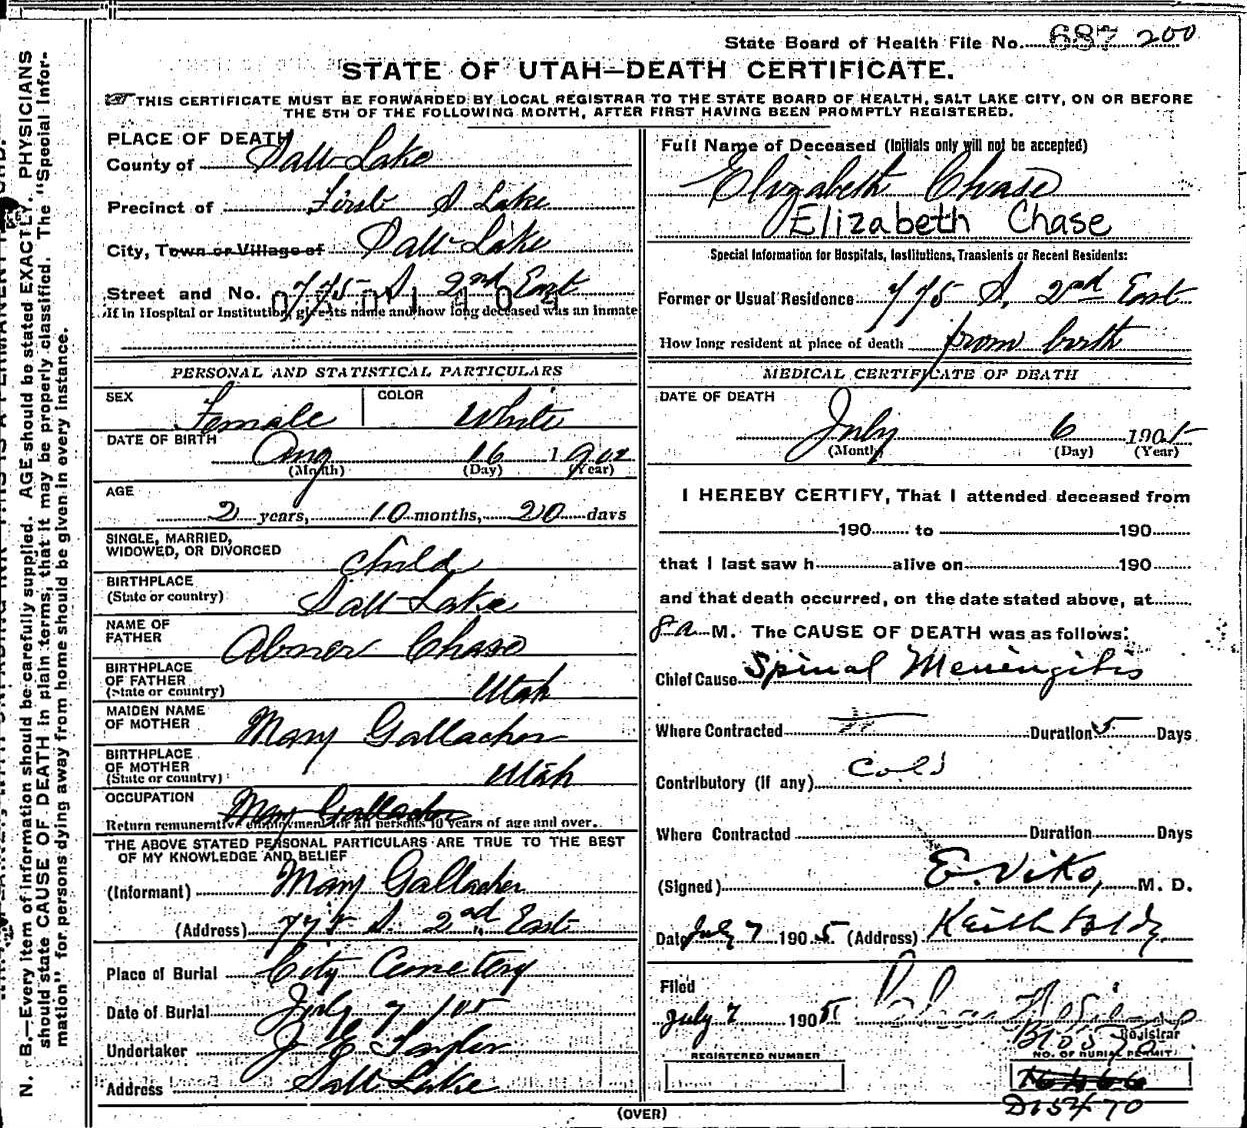 State Board of Health File No. 687 200
STATE OF UTAH—DEATH CERTIFICATE.
THIS CERTIFICATE MUST BE FORWARDED BY LOCAL REGISTRAR TO THE STATE BOARD OF HEALTH, SALT LAKE CITY, ON OR BEFORE
THE 5TH OF THE FOLLOWING MONTH, AFTER FIRST HAVING BEEN PROMPTLY REGISTERED.
PLACE OF DEATH
County of Salt Lake
Precinct of First S Lake
City, Town or Village of Salt Lake
Street and No. 775 S. 2nd East
If in Hospital or Institution, give its name and how long deceased was an inmate
PERSONAL AND STATISTICAL PARTICULARS
SEX Female COLOR White
DATE OF BIRTH Aug 16 1902
(Month) (Day) (Year)
AGE
2 years, 10 months, 20 days
SINGLE, MARRIED,
WIDOWED, OR DIVORCED child
BIRTHPLACE
(State or country) Salt Lake
NAME OF
FATHER Abner Chase
BIRTHPLACE
OF FATHER
(State or country) Utah
MAIDEN NAME
OF MOTHER Mary Gallacher
BIRTHPLACE
OF MOTHER
(State or country) Utah
OCCUPATION Mary Gallacher
Return remunerative employment for all persons 10 years of age and over.
THE ABOVE STATED PERSONAL PARTICULARS ARE TRUE TO THE BEST
OF MY KNOWLEDGE AND BELIEF
(Informant) Mary Gallacher
(Address) 775 S. 2nd East
Place of Burial City Cemetery
Date of Burial July 7 105
Undertaker J E Taylor
Address Salt Lake
Full Name of Deceased (Initials only will not be accepted)
Elizabeth Chase
Elizabeth Chase
Special Information for Hospitals, Institutions, Transients or Recent Residents:
Former or Usual Residence 775 S. 2nd East
How long resident at place of death from birth
MEDICAL CERTIFICATE OF DEATH
DATE OF DEATH
July 6 1905
(Month) (Day) (Year)
I HEREBY CERTIFY, That I attended deceased from
190 to 190
that I last saw h alive on 190
and that death occurred, on the date stated above, at
8 a M. The CAUSE OF DEATH was as follows:
Chief Cause Spinal Meningitis
Where Contracted Duration 5 Days
Contributory (if any) Cold
Where Contracted Duration Days
(Signed) E. Viko, M. D.
Date July 7 1905 (Address) Keith Bldg
Filed
July 7 1905
Registrar
REGISTERED NUMBER
NO. OF BURIAL PERMIT
D15470
(OVER)
N. B.—Every item of information should be carefully supplied. AGE should be stated EXACTLY. PHYSICIANS
should state CAUSE OF DEATH in plain terms, that it may be properly classified. The "Special Infor-
mation" for persons dying away from home should be given in every instance.